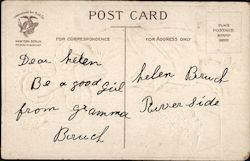 POST CARD
FOR CORRESPONDENCE
FOR ADDRESS ONLY
PLACE
POSTAGE
STAMP
HERE
Dear helen
Be a good Girl
from gramma
Bruch
helen Bruch
River side